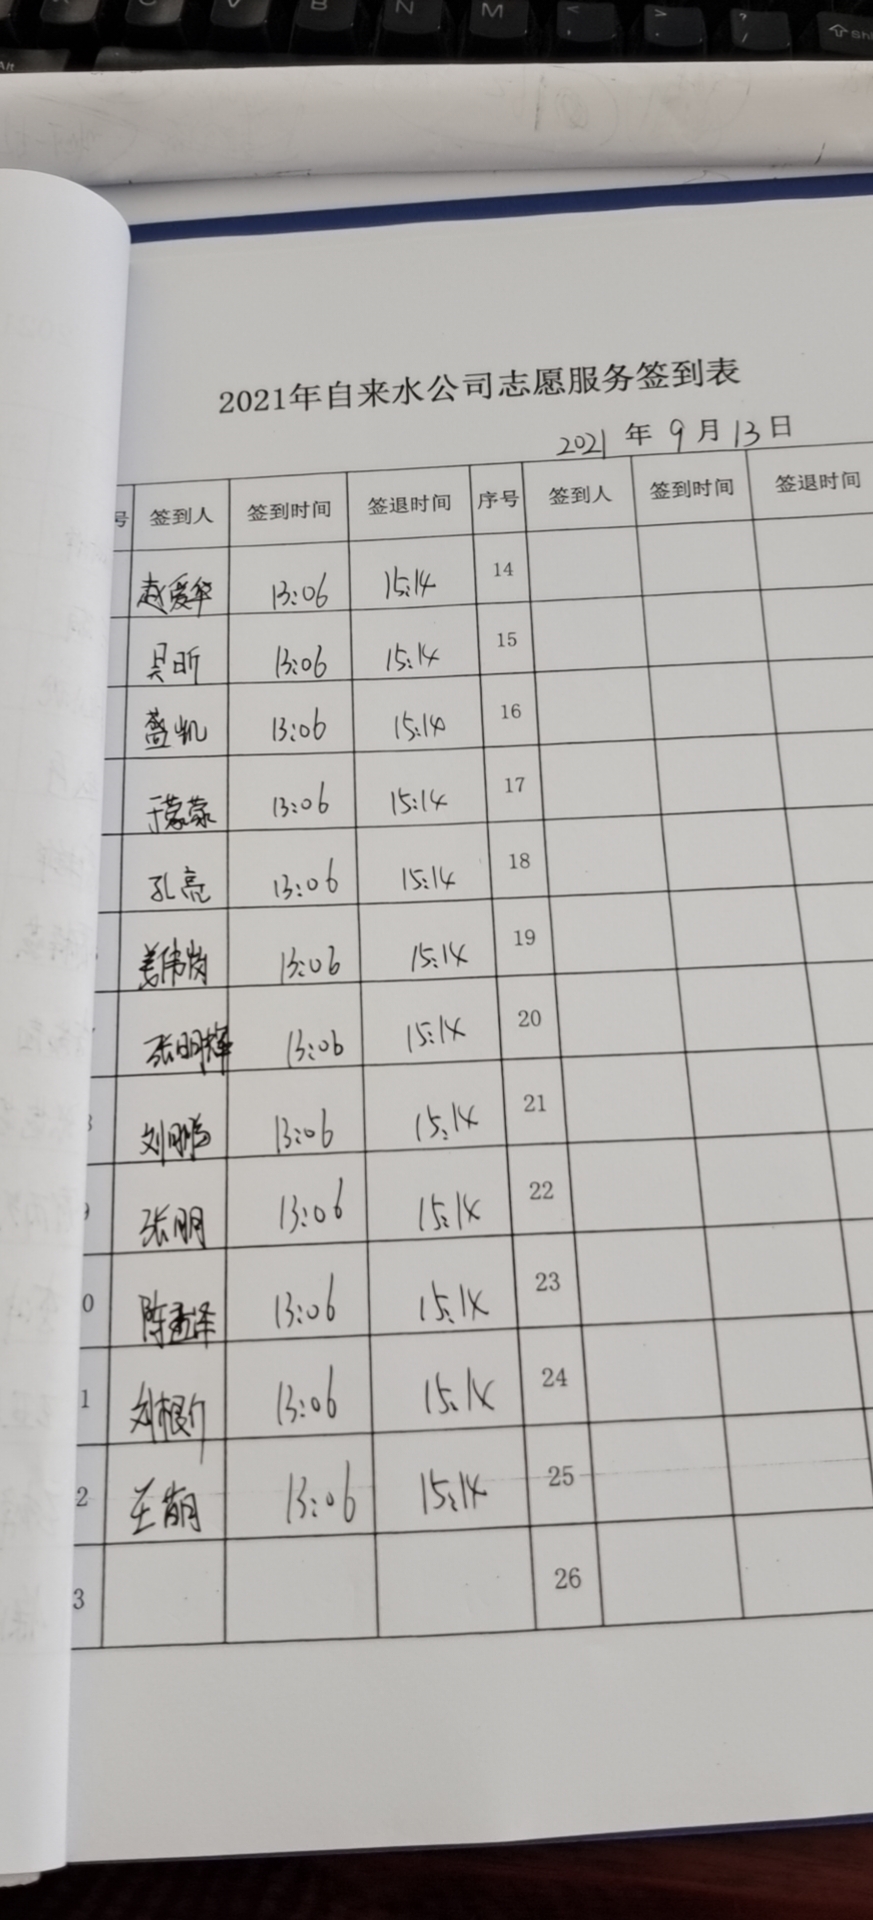 C V B N M < , > . ? / Shi
Alt
2021年自来水公司志愿服务签到表
2021 年 9 月 13 日
号 签到人 签到时间 签退时间 序号 签到人 签到时间 签退时间
赵爱华 13:06 15:14 14
吴昕 13:06 15:14 15
盖凯 13:06 15:14 16
于蒙蒙 13:06 15:14 17
孔亮 13:06 15:14 18
姜伟岗 13:06 15:14 19
张明辉 13:06 15:14 20
刘鹏 13:06 15:14 21
9 张朋 13:06 15:14 22
0 陈孟泽 13:06 15:14 23
1 刘根 13:06 15:14 24
2 王 13:06 15:14 25
3 26